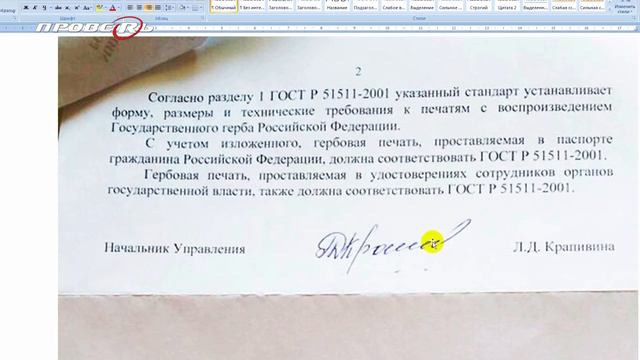 ПРОВЕRЬ
Обычный
Без инте...
Заголово...
Заголово...
Название
Подзагол...
Слабое в...
Выделение
Сильное ...
Строгий
Цитата 2
Выделенн...
Слабая сс...
Сильная с...
Изменить
стили
Шрифт
Абзац
Стили
2
Согласно разделу 1 ГОСТ Р 51511-2001 указанный стандарт устанавливает
форму, размеры и технические требования к печатям с воспроизведением
Государственного герба Российской Федерации.
С учетом изложенного, гербовая печать, проставляемая в паспорте
гражданина Российской Федерации, должна соответствовать ГОСТ Р 51511-2001.
Гербовая печать, проставляемая в удостоверениях сотрудников органов
государственной власти, также должна соответствовать ГОСТ Р 51511-2001.
Начальник Управления
Л.Д. Крапивина